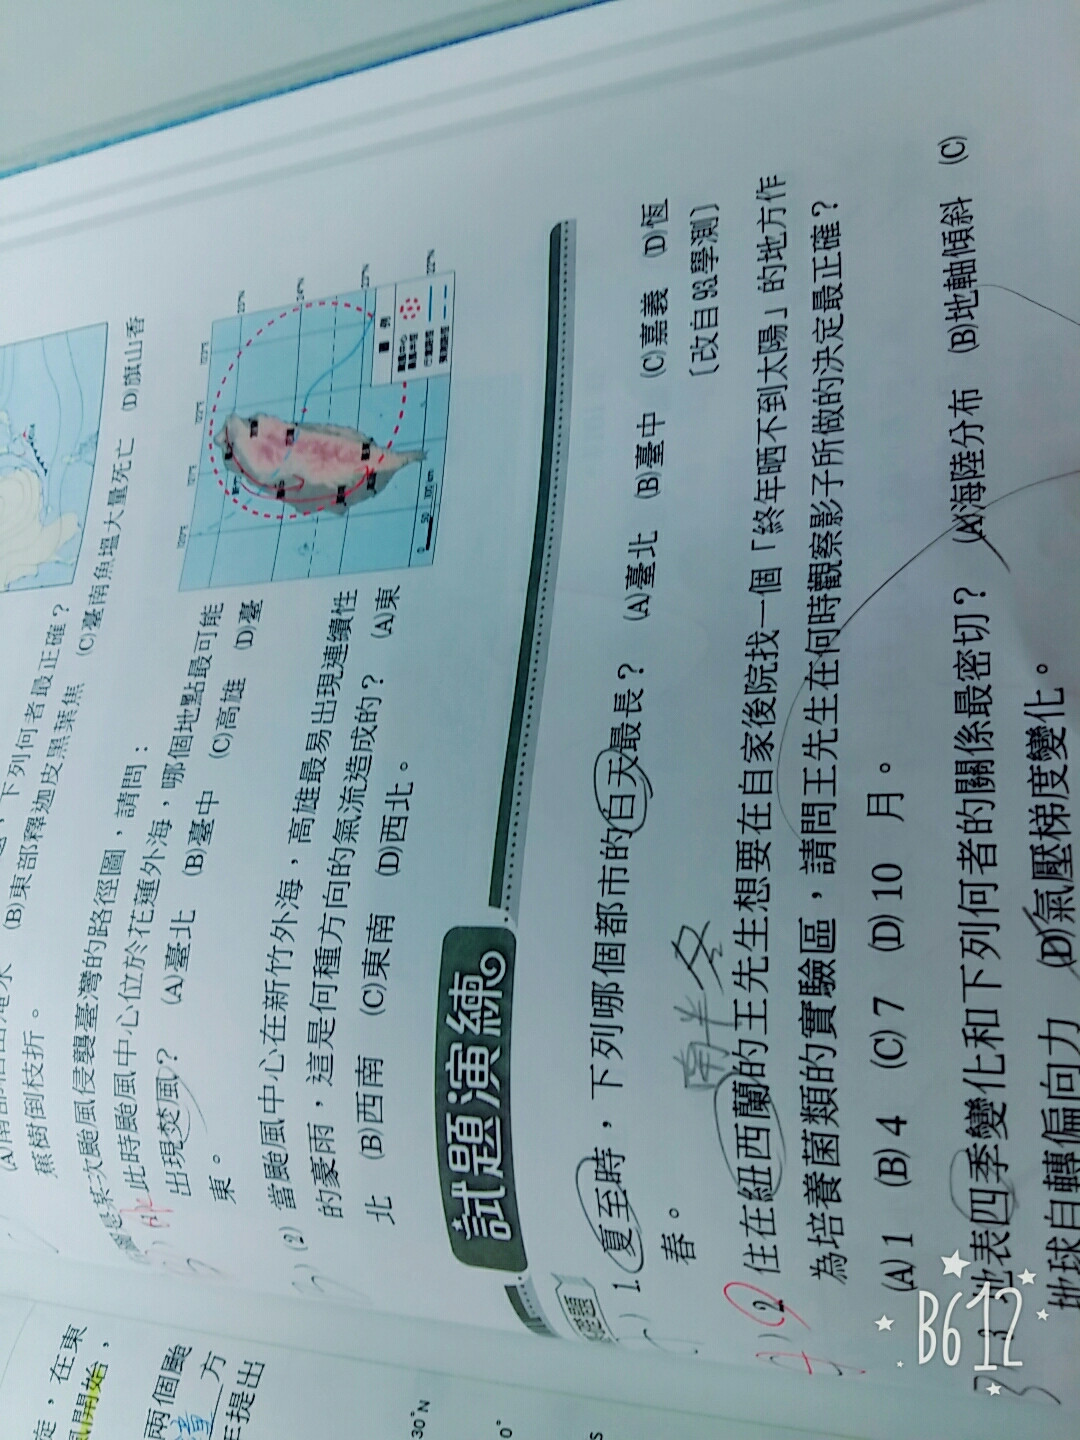 旋，在東
開始，
兩個颱
方
提出
30°N
0°
S
(B)東部釋迦皮黑葉焦 (C)臺南魚塭大量死亡 (D)旗山香
蕉樹倒枝折。
是某次颱風侵襲臺灣的路徑圖，請問：
此時颱風中心位於花蓮外海，哪個地點最可能
出現焚風？ (A)臺北 (B)臺中 (C)高雄 (D)臺
東。
(2) 當颱風中心在新竹外海，高雄最易出現連續性
的豪雨，這是何種方向的氣流造成的？ (A)東
北 (B)西南 (C)東南 (D)西北。
圖例
0 50 100 km
試題演練
1. 夏至時，下列哪個都市的白天最長？ (A)臺北 (B)臺中 (C)嘉義 (D)恆
春。 〔改自93學測〕
南半冬
2. 住在紐西蘭的王先生想要在自家後院找一個「終年晒不到太陽」的地方作
為培養菌類的實驗區，請問王先生在何時觀察影子所做的決定最正確？
(A) 1 (B) 4 (C) 7 (D) 10 月。
3. 地表四季變化和下列何者的關係最密切？ (A)海陸分布 (B)地軸傾斜 (C)
地球自轉偏向力 (D)氣壓梯度變化。
B612